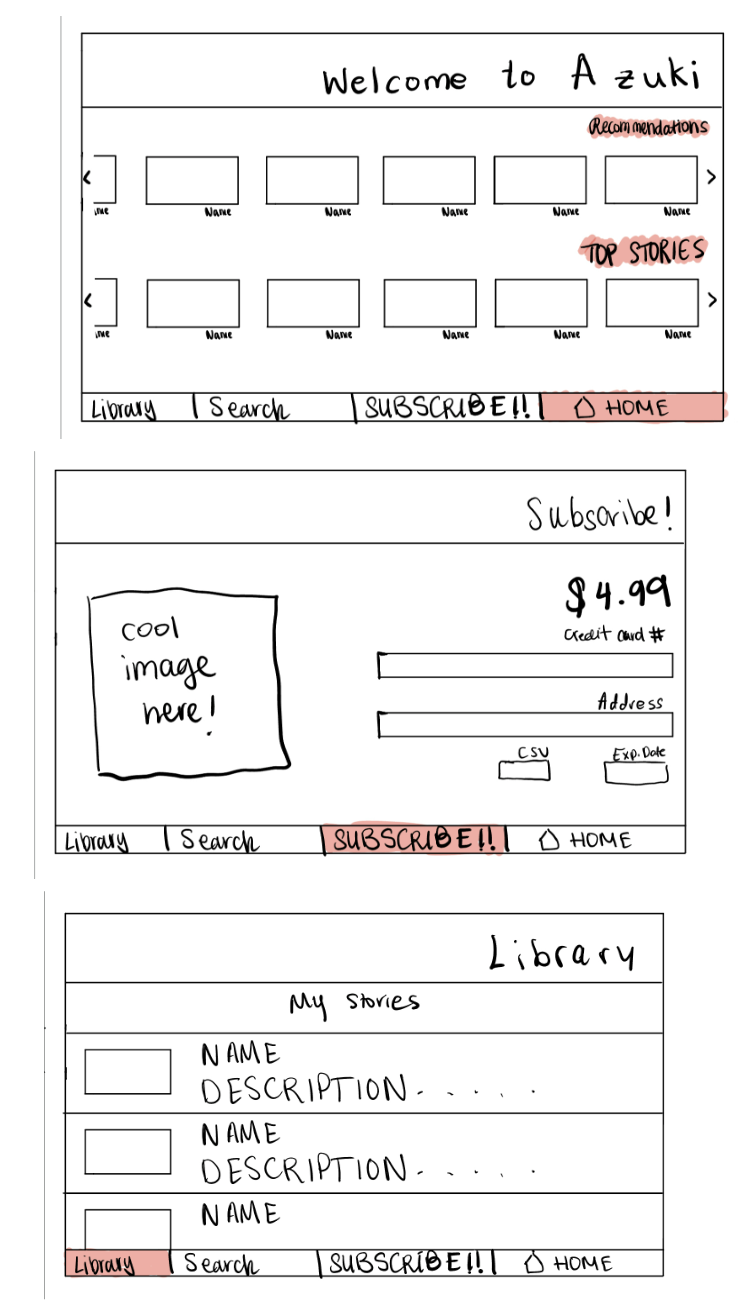 Welcome to Azuki
Recommendations
< >
ıme Name Name Name Name Name
TOP STORIES
< >
ıme Name Name Name Name Name
Library | Search | SUBSCRIBE!! HOME
Subscribe!
$4.99
cool
image
here!
Credit Card #
Address
CSV Exp. Date
Library | Search | SUBSCRIBE!! | HOME
Library
My Stories
NAME
DESCRIPTION- - . . . .
NAME
DESCRIPTION- - . . . .
NAME
Library | Search | SUBSCRIBE!! | HOME